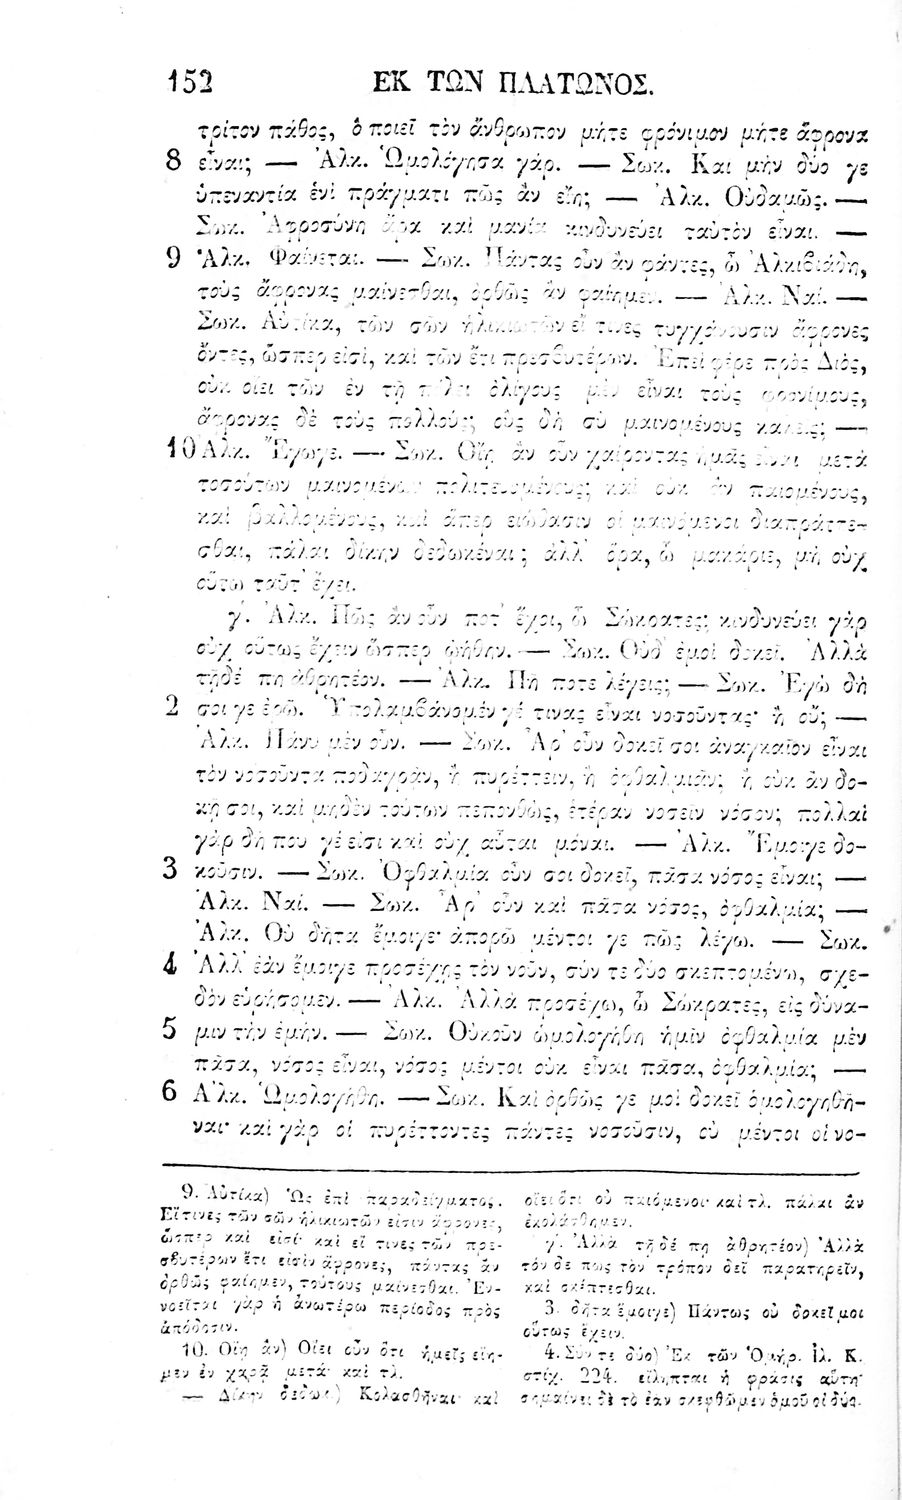 152 ΕΚ ΤΩΝ ΠΛΑΤΩΝΟΣ.
τρίτον πάθος, ὃ ποιεῖ τὸν ἄνθρωπον μήτε φρόνιμον μήτε ἄφρονα
8 εἶναι; — Ἀλκ. Ὡμολόγησα γάρ. — Σωκ. Και μὴν δύο γε
ὑπεναντία ἑνὶ πράγματι πῶς ἂν εἴη; — Ἀλκ. Οὐδαμῶς. —
Σωκ. Ἀφροσύνη ἄρα καὶ μανία κινδυνεύει ταὐτὸν εἶναι. —
9 Ἀλκ. Φαίνεται. — Σωκ. Πάντας οὖν ἂν φάντες, ὦ Ἀλκιβιάδη,
τοὺς ἄφρονας μαίνεσθαι, ὀρθῶς ἂν φαίημεν. — Ἀλκ. Ναί. —
Σωκ. Αὐτίκα, τῶν σῶν ἡλικιωτῶν εἴ τινες τυγχάνουσιν ἄφρονες
ὄντες, ὥσπερ εἰσὶ, καὶ τῶν ἔτι πρεσβυτέρων. Ἐπεὶ φέρε πρὸς Διὸς,
οὐκ οἴει τῶν ἐν τῇ πόλει ὀλίγους μὲν εἶναι τοὺς φρονίμους,
ἄφρονας δὲ τοὺς πολλούς; οὓς δὴ σὺ μαινομένους καλεῖς; —
10 Ἀλκ. Ἔγωγε. — Σωκ. Οἴῃ ἂν οὖν χαίροντας ἡμᾶς εἶναι μετὰ
τοσούτων μαινομένων πολιτευομένους; καὶ οὐκ ἂν παιομένους,
καὶ βαλλομένους, καὶ ἅπερ εἰώθασιν οἱ μαινόμενοι διαπράττε-
σθαι, πάλαι δίκην δεδωκέναι; ἀλλ' ὅρα, ὦ μακάριε, μὴ οὐχ
οὕτω ταῦτ' ἔχει.
γ'. Ἀλκ. Πῶς ἂν οὖν ποτ' ἔχοι, ὦ Σώκρατες; κινδυνεύει γὰρ
οὐχ οὕτως ἔχειν ὥσπερ ᾠήθην. — Σωκ. Οὐδ' ἐμοὶ δοκεῖ. Ἀλλὰ
τῇδέ πη ἀθρητέον. — Ἀλκ. Πῆ ποτε λέγεις; — Σωκ. Ἐγὼ δή
2 σοι γε ἐρῶ. Ὑπολαμβάνομέν γέ τινας εἶναι νοσοῦντας· ἢ οὔ; —
Ἀλκ. Πάνυ μὲν οὖν. — Σωκ. Ἆρ' οὖν δοκεῖ σοι ἀναγκαῖον εἶναι
τὸν νοσοῦντα ποδαγρᾶν, ἢ πυρέττειν, ἢ ὀφθαλμιᾶν; ἢ οὐκ ἂν δο-
κῇ σοι, καὶ μηδὲν τούτων πεπονθὼς, ἑτέραν νοσεῖν νόσον; πολλαὶ
γὰρ δή που γέ εἰσι καὶ οὐχ αὗται μόναι. — Ἀλκ. Ἔμοιγε δο-
3 κοῦσιν. — Σωκ. Ὀφθαλμία οὖν σοι δοκεῖ, πᾶσα νόσος εἶναι; —
Ἀλκ. Ναί. — Σωκ. Ἆρ' οὖν καὶ πᾶσα νόσος, ὀφθαλμία; —
Ἀλκ. Οὐ δῆτα ἔμοιγε· ἀπορῶ μέντοι γε πῶς λέγω. — Σωκ.
4 Ἀλλ' ἐὰν ἔμοιγε προσέχῃς τὸν νοῦν, σύν τε δύο σκεπτομένω, σχε-
δὸν εὑρήσομεν. — Ἀλκ. Ἀλλὰ προσέχω, ὦ Σώκρατες, εἰς δύνα-
5 μιν τὴν ἐμήν. — Σωκ. Οὐκοῦν ὡμολογήθη ἡμῖν ὀφθαλμία μὲν
πᾶσα, νόσος εἶναι, νόσος μέντοι οὐκ εἶναι πᾶσα, ὀφθαλμία; —
6 Ἀλκ. Ὡμολογήθη. — Σωκ. Καὶ ὀρθῶς γε μοὶ δοκεῖ ὁμολογηθῆ-
ναι· καὶ γὰρ οἱ πυρέττοντες πάντες νοσοῦσιν, οὐ μέντοι οἱ νο-
9. Αὐτίκα) Ὡς ἐπὶ παραδείγματος.
Εἴ τινες τῶν σῶν ἡλικιωτῶν εἰσιν ἄφρονες,
ὥσπερ καὶ εἰσί· καὶ εἴ τινες τῶν πρε-
σβυτέρων ἔτι εἰσὶν ἄφρονες, πάντας ἂν
ὀρθῶς φαίημεν, τούτους μαίνεσθαι. Ἐν-
νοεῖται γὰρ ἡ ἀνωτέρω περίοδος πρὸς
ἀπόδοσιν.
10. Οἴῃ ἂν) Οἴει οὖν ὅτι ἡμεῖς εἴη-
μεν ἐν χαρᾷ μετά· καὶ τλ.
— Δίκην δεδωκ.) Κολασθῆναι· καὶ
οἴει ὅτι οὐ παιόμενοι· καὶ τλ. πάλαι ἂν
ἐκολάσθημεν.
γ'. Ἀλλὰ τῇδέ πη ἀθρητέον) Ἀλλὰ
τόνδε πως τὸν τρόπον δεῖ παρατηρεῖν,
καὶ σκέπτεσθαι.
3. δῆτα ἔμοιγε) Πάντως οὐ δοκεῖ μοι
οὕτως ἔχειν.
4. Σύν τε δύο) Ἐκ τῶν Ὁμήρ. Ἰλ. Κ.
στίχ. 224. εἴληπται ἡ φράσις αὕτη·
σημαίνει δὲ τὸ ἐὰν σκεφθῶμεν ὁμοῦ οἱ δύο.